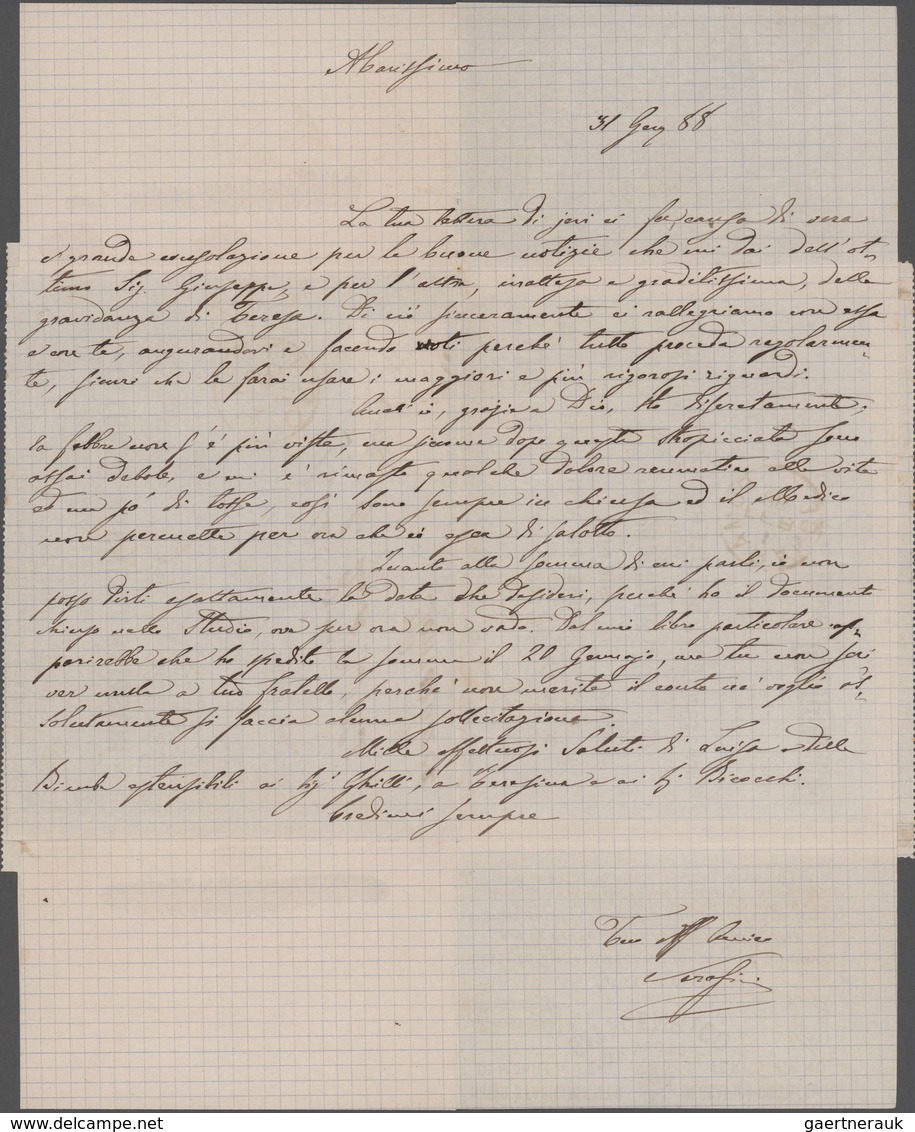 Carissimo
31 Gen 88
La tua lettera di jeri ci fu causa di vera
e grande consolazione per le buone notizie che mi dai dell'ot-
timo Sig. Giuseppe, e per l'altra, inattesa e graditissima, della
gravidanza di Teresa. Di ciò sinceramente ci rallegriamo con essa
e con te, augurandovi e facendo voti perchè tutto proceda regolarmen-
te, sicuri che le farai usare i maggiori e più rigorosi riguardi.
Quanto a me, grazie a Dio, sto discretamente.
la febbre non s'è più vista, ma siccome dopo questa stropicciata sono
assai debole, e mi è rimasto qualche dolore reumatico alla vita
ed un pó di tosse, così sono sempre in chiusa ed il Medico
non permette per ora che io esca di salotto.
Quanto alla somma di cui parli, io non
posso dirti esattamente la data che desideri, perchè ho il documento
chiuso nello Studio, ove per ora non vado. Dal mio libro particolare ap-
parirebbe che ho spedito la somma il 20 Gennajo, ma tu non scri
ver nulla a tuo fratello, perchè non merita il conto nè voglio as-
solutamente si faccia alcuna sollecitazione.
Mille affettuosi saluti di Luisa e della
Bimba estensibili ai Sigi Ghilli, a Teresina e ai Si Bicocchi.
Credimi sempre
Tuo Aff Amico
Serafini
gaertnerauk